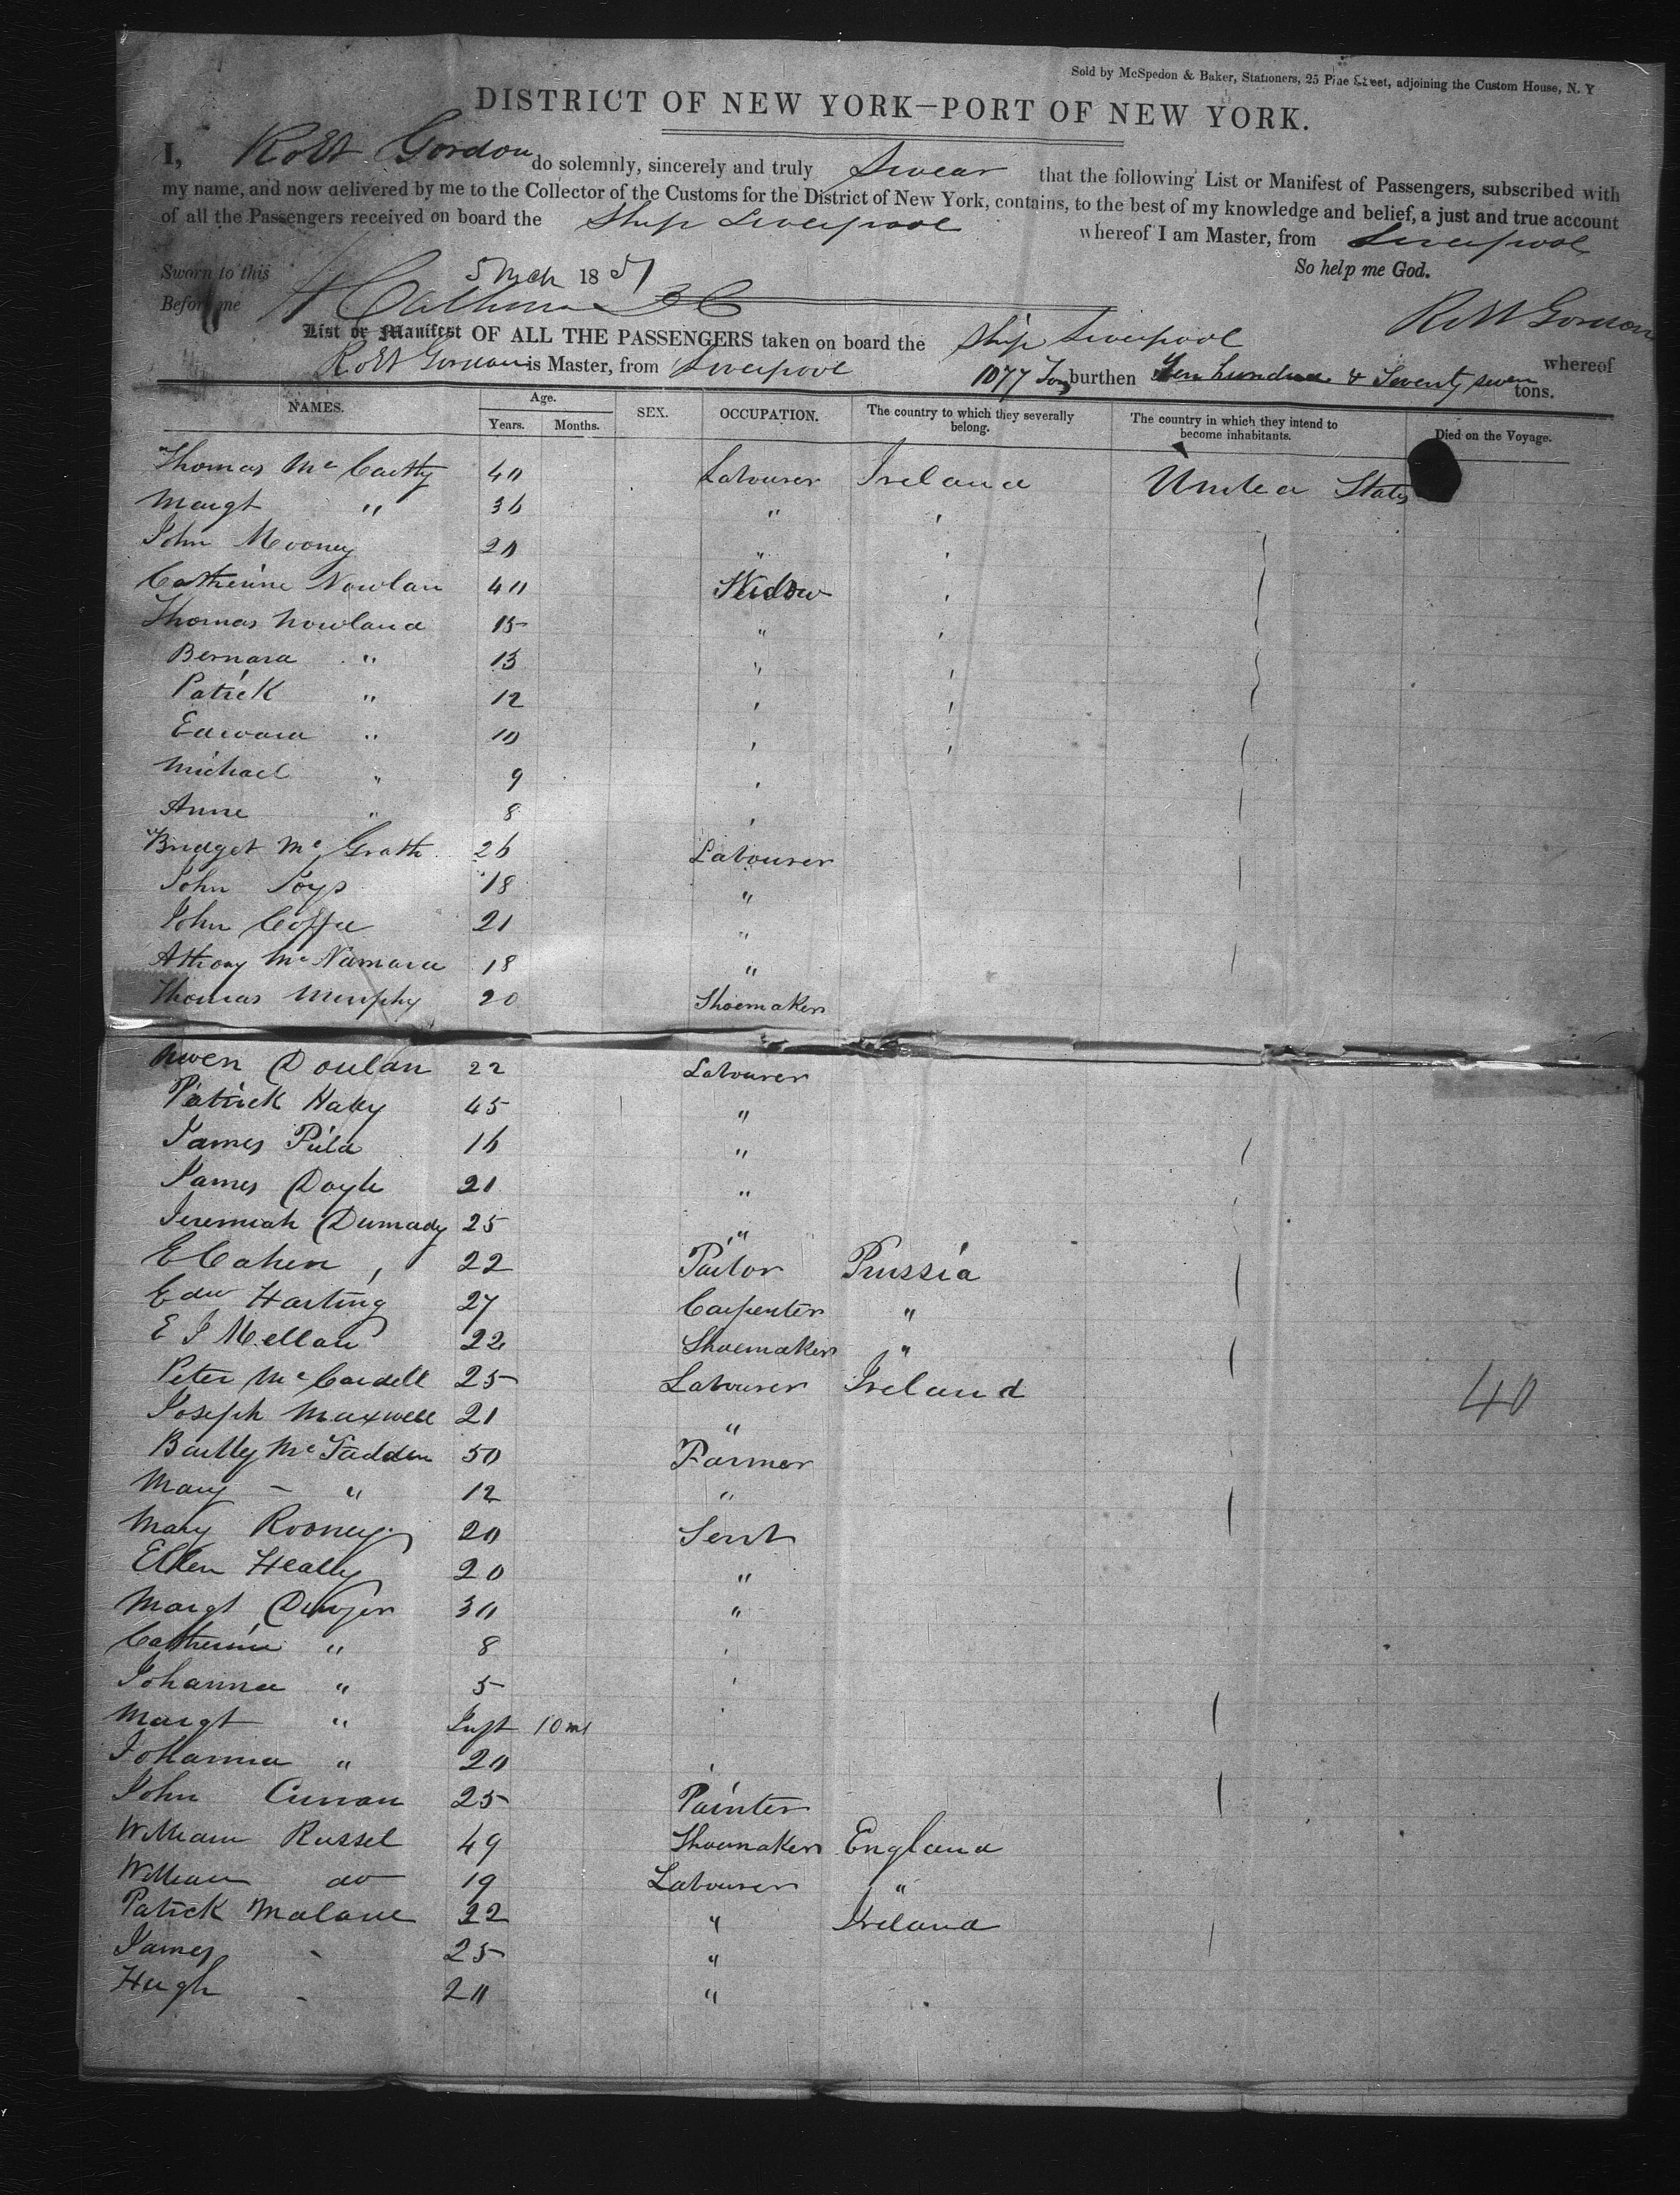 Sold by McSpedon & Baker, Stationers, 25 Pine Street, adjoining the Custom House, N. Y
DISTRICT OF NEW YORK—PORT OF NEW YORK.
I, Robt Gordon do solemnly, sincerely and truly Swear that the following List or Manifest of Passengers, subscribed with
my name, and now delivered by me to the Collector of the Customs for the District of New York, contains, to the best of my knowledge and belief, a just and true account
of all the Passengers received on board the Ship Liverpool whereof I am Master, from Liverpool
Sworn to this 5 Mch 1851 So help me God.
Before me Robt Gordon
List or Manifest OF ALL THE PASSENGERS taken on board the Ship Liverpool whereof
Robt Gordon is Master, from Liverpool 1077 Tons burthen Ten hundred & Seventy seven tons.
NAMES. Age. Years. Months. SEX. OCCUPATION. The country to which they severally belong. The country in which they intend to become inhabitants. Died on the Voyage.
Thomas Mc Cartty 40 Labourer Ireland United States
Margt " 36 " "
John Mooney 20 " "
Catherine Nowlan 40 Widow "
Thomas Nowland 15 " "
Bernard " 13 " "
Patrick " 12 " "
Edward " 10 " "
Michael " 9 "
Anne " 8 "
Bridget Mc Grath 26 Labourer
John 18 "
John Coffee 21 "
Athony Mc Namara 18 "
Thomas Murphy 20 Shoemaker
Owen Doulan 22 Labourer
Patrick Haley 45 "
James 16 "
James Doyle 21 "
Jeremiah 25 "
E Cahen 22 Tailor Prussia
Edw Harting 27 Carpenter "
E J Mellan 22 Shoemaker "
Peter Mc Cardell 25 Labourer Ireland
40
Joseph Maxwell 21 "
Bartly Mc Fadden 50 Farmer
Mary – " 12 "
Mary Rooney 20 Servt
Ellen Heally 20 "
Margt Dwyer 30 "
Catherine " 8 "
Johanna " 5 "
Margt " Inft 10 ms "
Johanna " 20 "
John Curran 25 Painter
William Russel 49 Shoemaker England
William do 19 Labourer "
Patrick Malone 22 " Ireland
James - 25 "
Hugh - 20 "